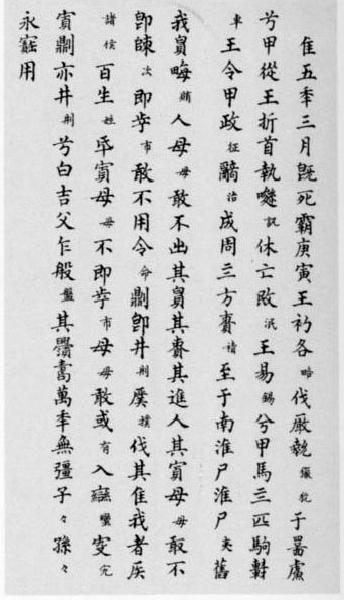 隹五秊三月既死霸庚寅王初各略伐厰玁狁于䖒
兮甲從王折首執訊休亡敃泯王易錫兮甲馬三匹駒
車王令甲政征治成周三方至于南淮尸淮尸夷舊
我畮賄人母毋敢不出其其其進人其賓母毋敢不
即次即市敢不用令命鼎即井刑撲伐其隹我者
諸侯百生姓氒賓母毋不即市母毋敢或有入䜌蠻宄
賓鼎亦井刑兮白吉父乍般盤其萬秊無彊子々孫々
永寶用